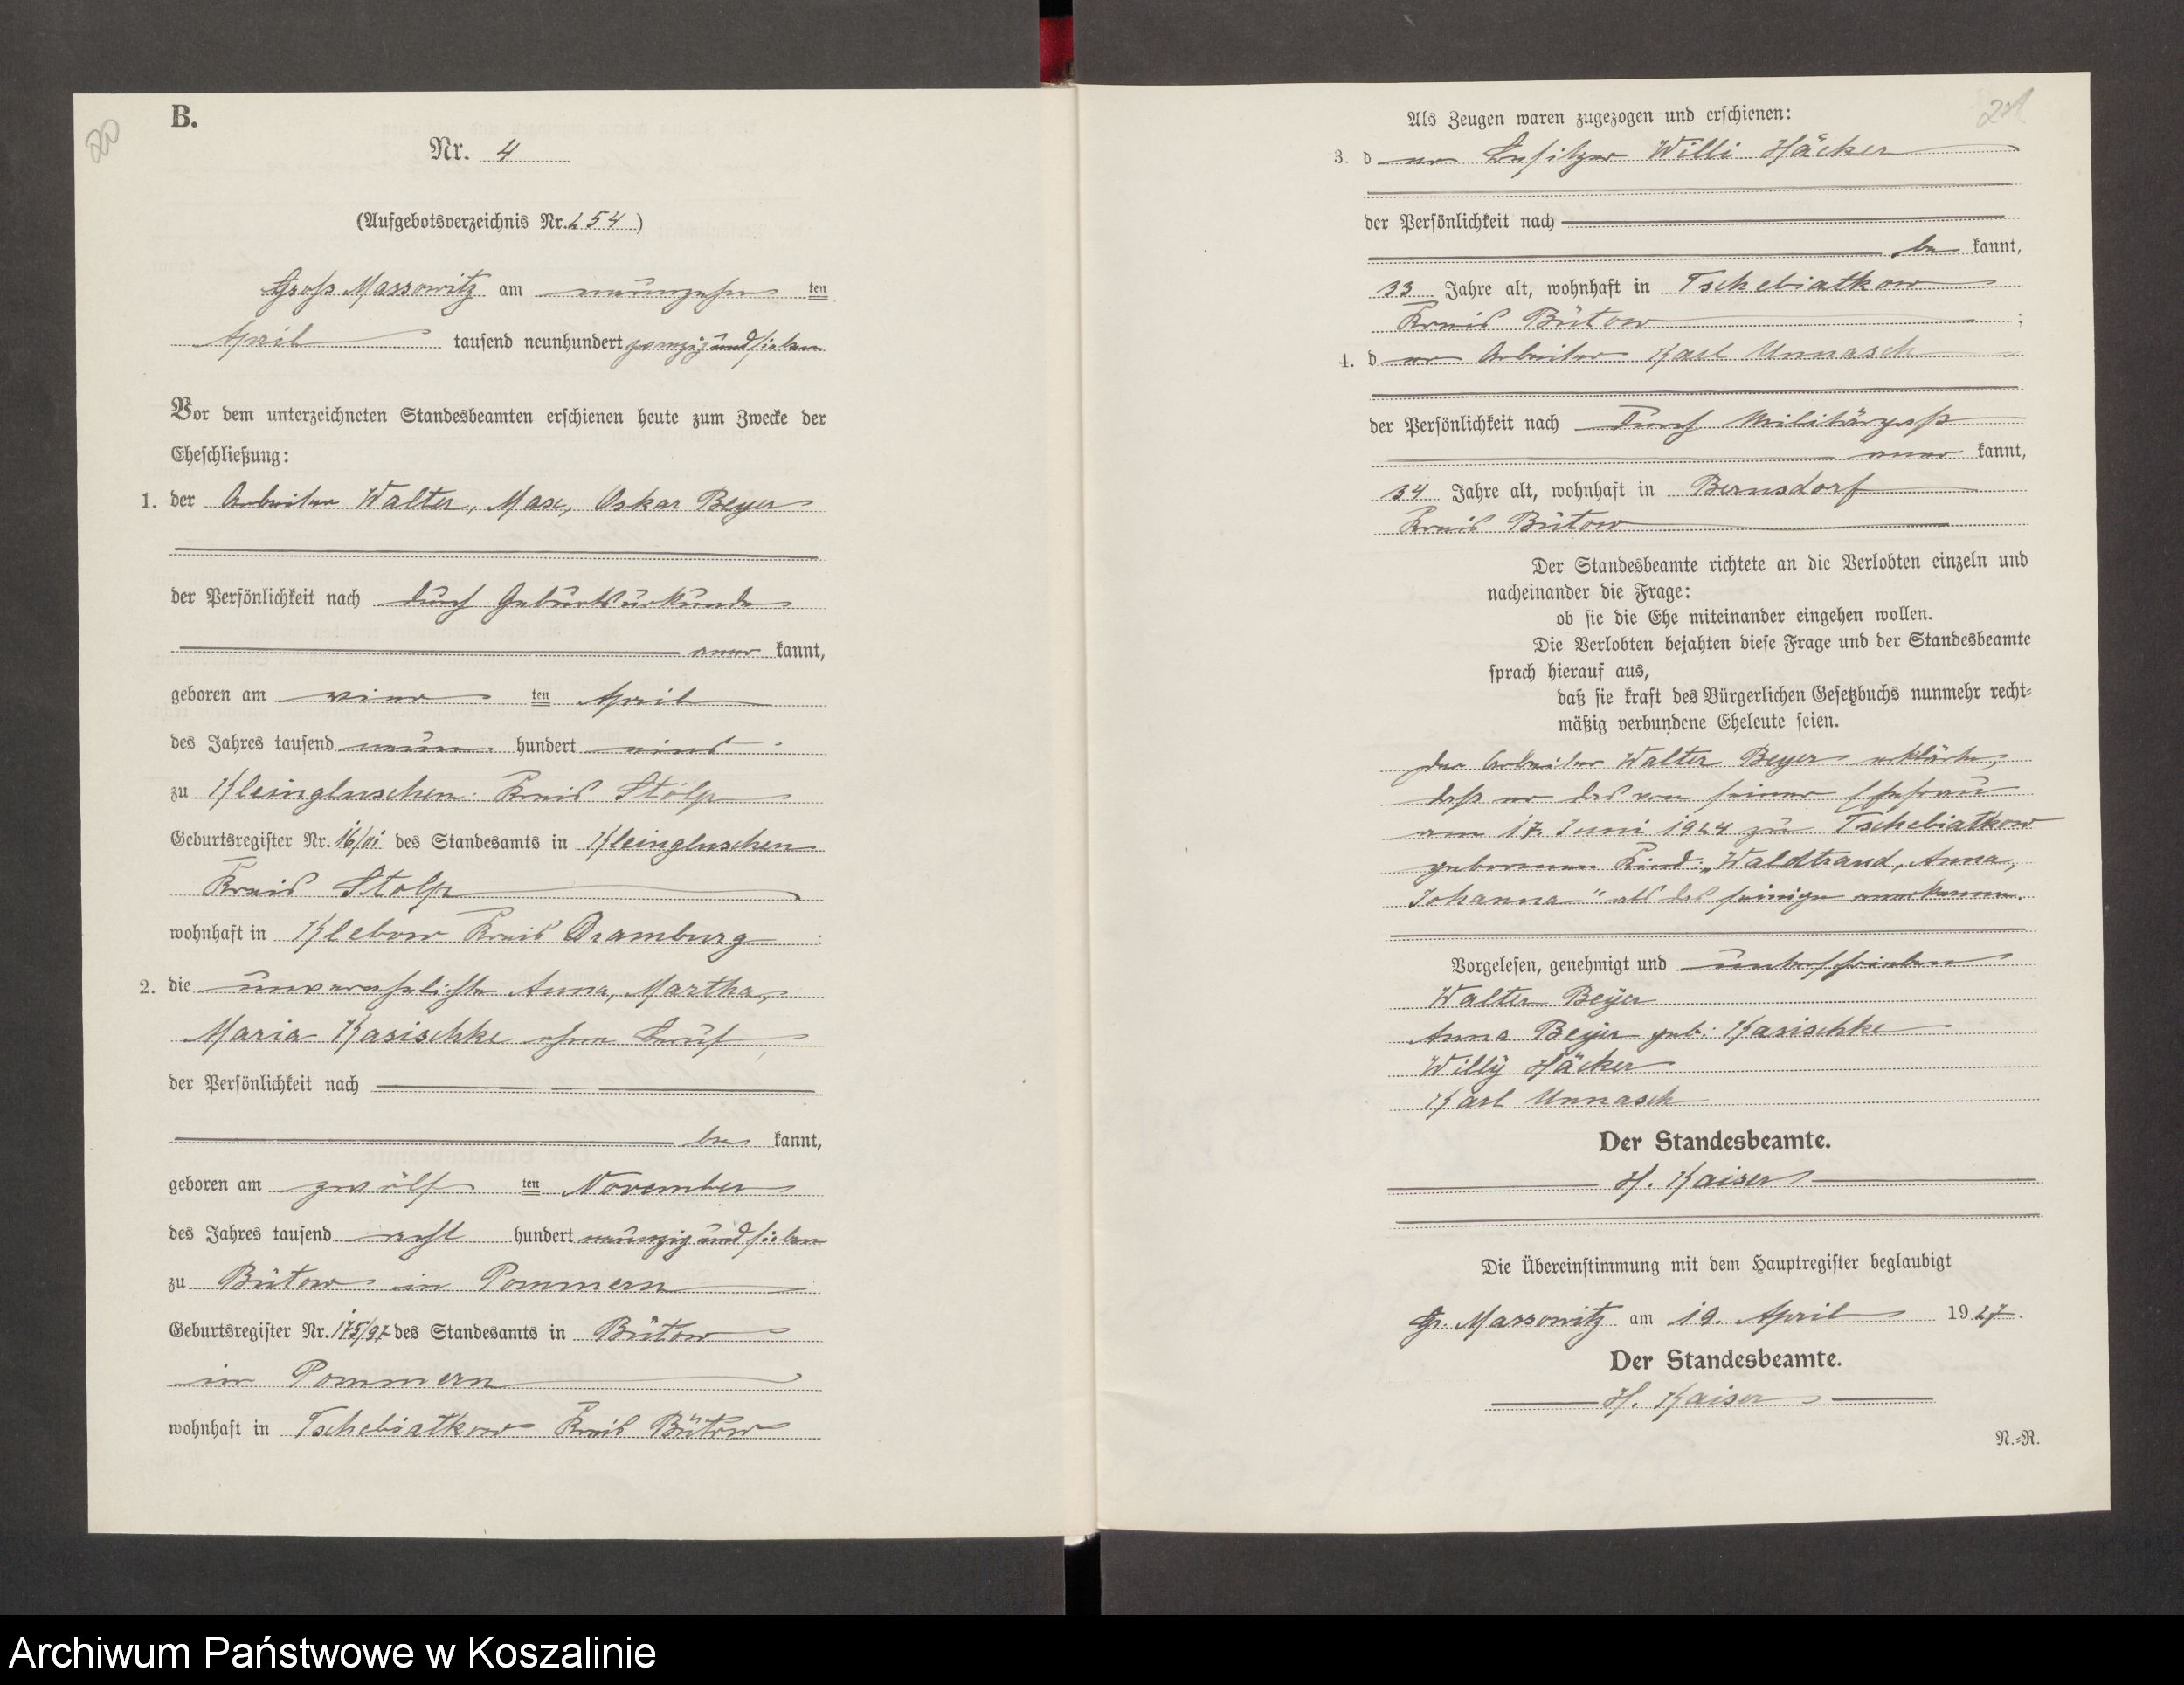 20
B.
Nr. 4
(Aufgebotsverzeichnis Nr. 254)
Gross Massowitz am neunzehn ten
April tausend neunhundert zwanzig und sieben
Vor dem unterzeichneten Standesbeamten erschienen heute zum Zwecke der
Eheschließung:
1. der Arbeiter Walter, Max, Oskar Beyer
der Persönlichkeit nach durch Geburtsurkunde
aner kannt,
geboren am vier ten April
des Jahres tausend neun hundert eins
zu Kleingluschen Kreis Stolp
Geburtsregister Nr. 16/01 des Standesamts in Kleingluschen
Kreis Stolp
wohnhaft in Klebow Kreis Dramburg
2. die unverehelichte Anna, Martha,
Maria Kasischke ohne Beruf
der Persönlichkeit nach
be kannt,
geboren am zwölf ten November
des Jahres tausend acht hundert neunzig und sieben
zu Bütow in Pommern
Geburtsregister Nr. 175/97 des Standesamts in Bütow
in Pommern
wohnhaft in Tschebiatkow Kreis Bütow
21
Als Zeugen waren zugezogen und erschienen:
3. d er Besitzer Willi Häcker
der Persönlichkeit nach
be kannt,
33 Jahre alt, wohnhaft in Tschebiatkow
Kreis Bütow ;
4. d er Arbeiter Karl Unnasch
der Persönlichkeit nach durch Militärpaß
aner kannt,
34 Jahre alt, wohnhaft in Bernsdorf
Kreis Bütow
Der Standesbeamte richtete an die Verlobten einzeln und
nacheinander die Frage:
ob sie die Ehe miteinander eingehen wollen.
Die Verlobten bejahten diese Frage und der Standesbeamte
sprach hierauf aus,
daß sie kraft des Bürgerlichen Gesetzbuchs nunmehr recht-
mäßig verbundene Eheleute seien.
Der Arbeiter Walter Beyer erklärte,
daß er das von seiner Ehefrau
am 17. Juni 1924 zu Tschebiatkow
geborenen Kind: „Waldtraud, Anna,
Johanna" als das seinige anerkenne.
Vorgelesen, genehmigt und unterschrieben
Walter Beyer
Anna Beyer geb: Kasischke
Willy Häcker
Karl Unnasch
Der Standesbeamte.
H. Kaiser
Die Übereinstimmung mit dem Hauptregister beglaubigt
Gr. Massowitz am 19. April 1927.
Der Standesbeamte.
H. Kaiser
N.-R.
Archiwum Państwowe w Koszalinie